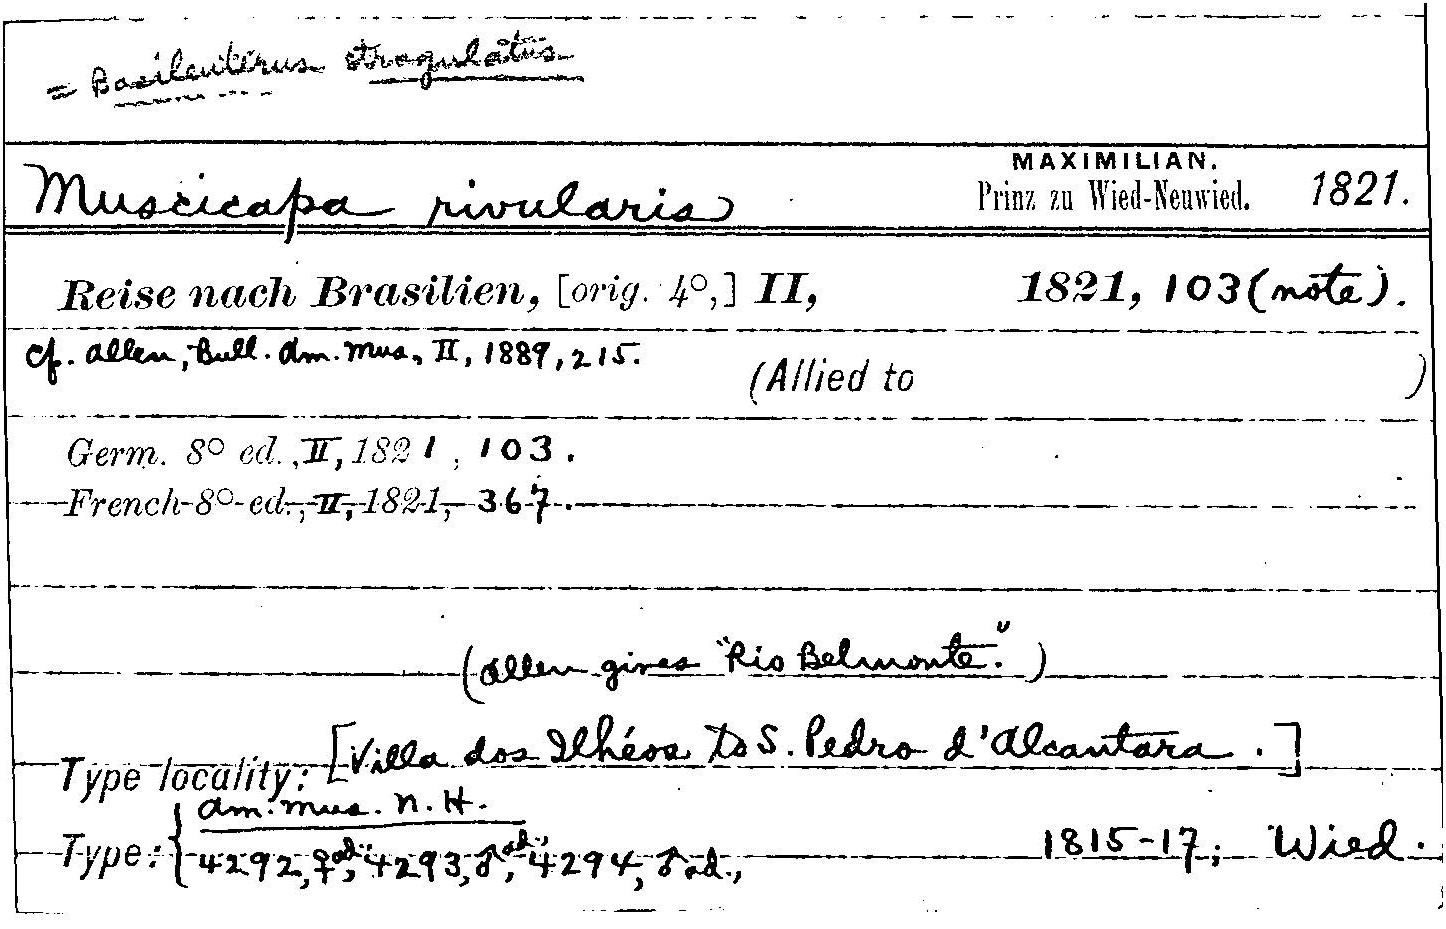 = Basileuterus stragulatus
Muscicapa rivularis
MAXIMILIAN.
Prinz zu Wied-Neuwied.
1821.
Reise nach Brasilien, [orig. 4°,] II, 1821, 103 (note).
Cf. Allen, Bull. Am. Mus. II, 1889, 215.
(Allied to )
Germ. 8° ed., II, 1821, 103.
French 8° ed., II, 1821, 367.
(Allen gives "Rio Belmonte.")
Type locality: [Villa dos Ilhéos to S. Pedro d'Alcantara.]
Am. Mus. N. H.
Type: { 4292, ♀ ad., 4293, ♂ ad., 4294, ♂ ad., 1815-17; Wied.